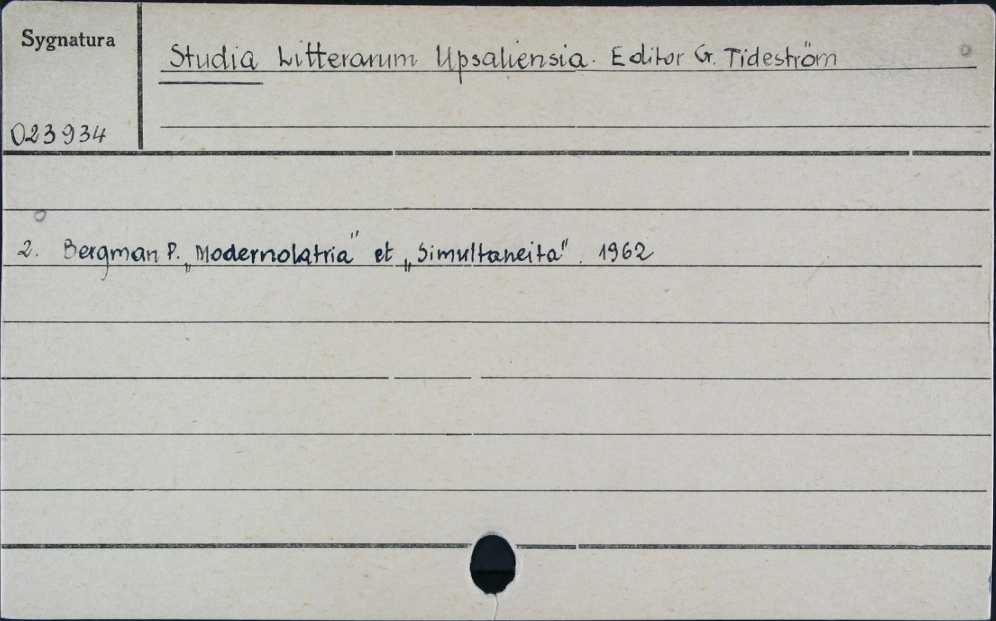 Sygnatura
Studia Litterarum Upsaliensia. Editor G. Tideström
023934
2. Bergman P. „Modernolatria" et „Simultaneita". 1962